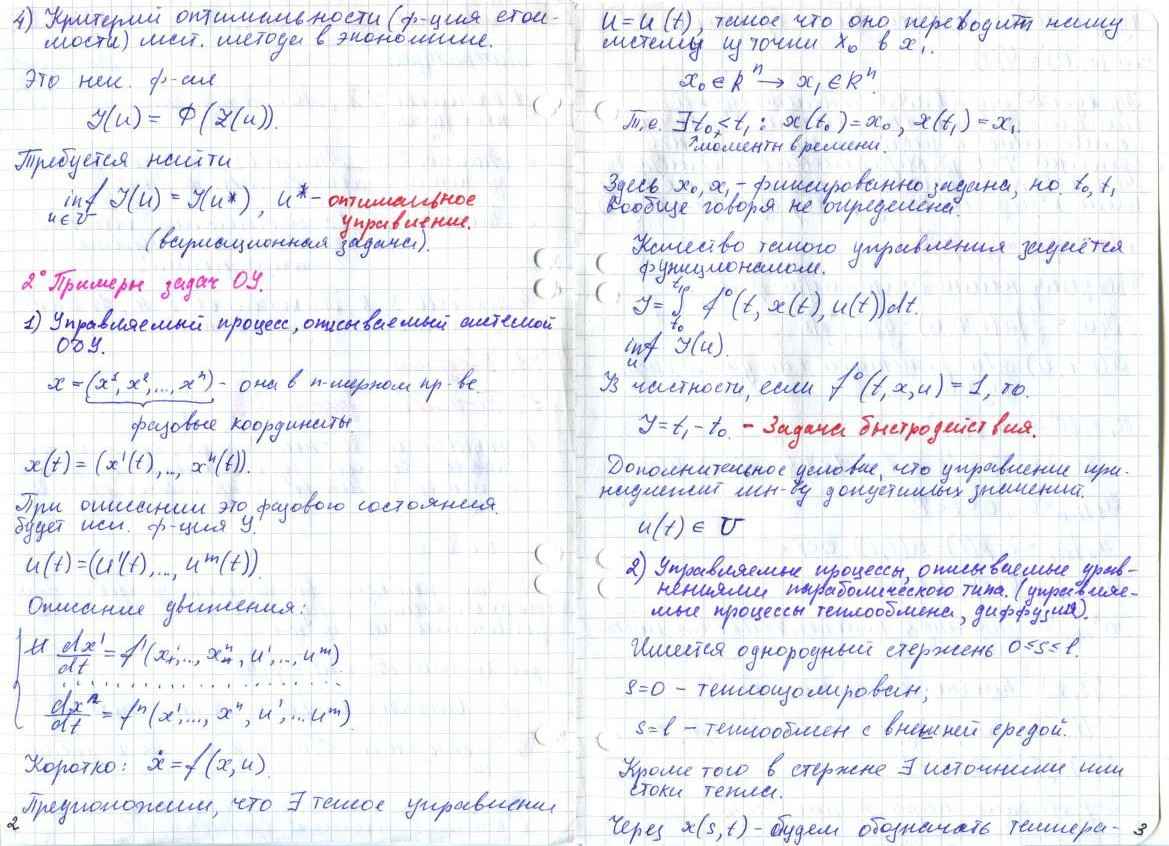 4) Критерий оптимальности (ф-ция стои-
мости) мат. методы в экономике.
Это нек. ф-ал
J(u) = Φ(Z(u)).
Требуется найти
inf J(u) = J(u*), u* - оптимальное
u∈U
управление.
(вариационная задача).
2° Примеры задач ОУ.
1) Управляемый процесс, описываемый системой
ОДУ.
x = (x¹, x², ..., xⁿ) - она в n-мерном пр-ве.
фазовые координаты.
x(t) = (x¹(t), .., xⁿ(t)).
При описании это фазового состояния
будет исп. ф-ция У.
u(t) = (u¹(t), ..., uᵐ(t))
Описание движения:
dx¹/dt = f¹(x¹, ..., xⁿ, u¹, .., uᵐ)
. . . . . . . . . . . . . . . .
dxⁿ/dt = fⁿ(x¹, ..., xⁿ, u¹, ... uᵐ)
Коротко: ẋ = f(x, u)
Предположим, что ∃ такое управление
2
u = u(t), такое что оно переводит нашу
систему из точки x₀ в x₁.
x₀ ∈ Rⁿ → x₁ ∈ Rⁿ.
Т.е. ∃ t₀ < t₁ : x(t₀) = x₀, x(t₁) = x₁.
моменты времени.
Здесь x₀, x₁ - фиксированно задана, но t₀, t₁
вообще говоря не определена.
Качество такого управления задаётся
функционалом.
J = ∫ₜ₀^t₁ f⁰(t, x(t), u(t))dt.
inf J(u).
u
В частности, если f⁰(t, x, u) = 1, то.
J = t₁ - t₀. - Задача быстродействия.
Дополнительное условие, что управление при-
надлежит мн-ву допустимых значений.
u(t) ∈ U
2) Управляемые процессы, описываемые урав-
нениями параболического типа. (управляе-
мые процессы теплообмена, диффузия).
Имеется однородный стержень 0≤s≤l.
s=0 - теплоизолирован;
s=l - теплообмен с внешней средой.
Кроме того в стержне ∃ источники или
стоки тепла.
Через x(s,t) - будем обозначать темпера-
3